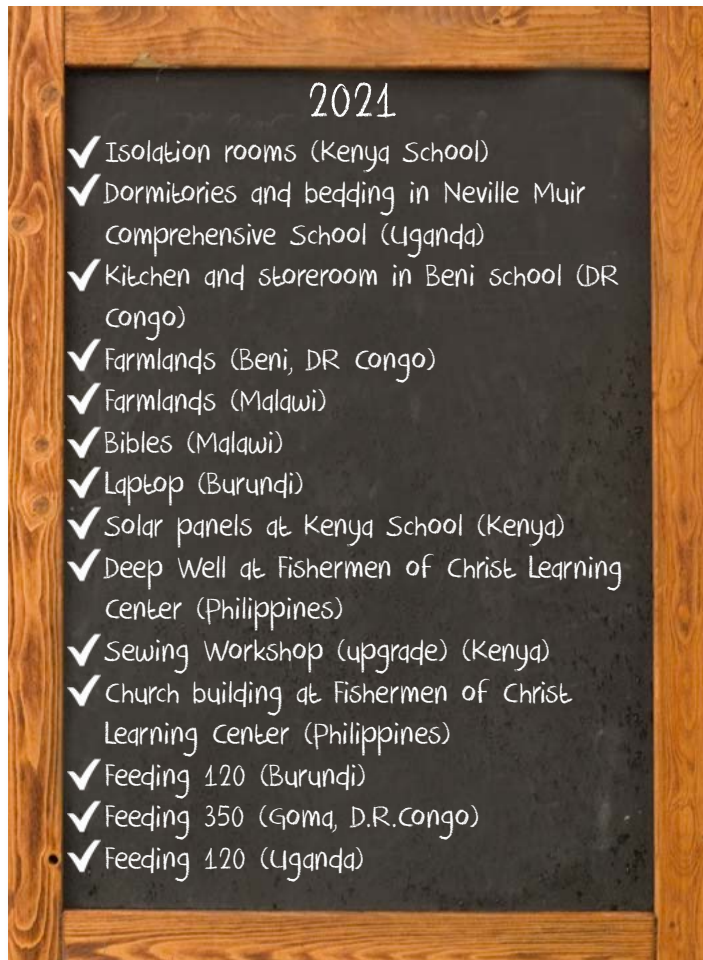 2021
✓ Isolation rooms (Kenya School)
✓ Dormitories and bedding in Neville Muir
Comprehensive School (Uganda)
✓ Kitchen and storeroom in Beni school (DR
Congo)
✓ Farmlands (Beni, DR Congo)
✓ Farmlands (Malawi)
✓ Bibles (Malawi)
✓ Laptop (Burundi)
✓ Solar panels at Kenya School (Kenya)
✓ Deep Well at Fishermen of Christ Learning
Center (Philippines)
✓ Sewing Workshop (upgrade) (Kenya)
✓ Church building at Fishermen of Christ
Learning Center (Philippines)
✓ Feeding 120 (Burundi)
✓ Feeding 350 (Goma, D.R.Congo)
✓ Feeding 120 (Uganda)